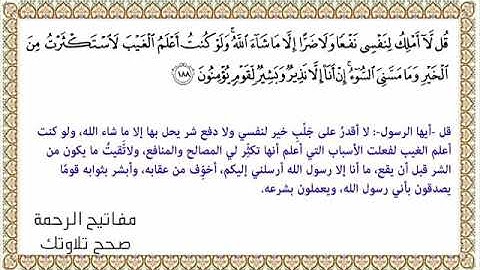 قُل لَّآ أَمْلِكُ لِنَفْسِى نَفْعًا وَلَا ضَرًّا إِلَّا مَا شَآءَ ٱللَّهُ ۚ وَلَوْ كُنتُ أَعْلَمُ ٱلْغَيْبَ لَٱسْتَكْثَرْتُ مِنَ
ٱلْخَيْرِ وَمَا مَسَّنِىَ ٱلسُّوٓءُ ۚ إِنْ أَنَا۠ إِلَّا نَذِيرٌ وَبَشِيرٌ لِّقَوْمٍ يُؤْمِنُونَ ١٨٨
قل -أيها الرسول-: لا أقدرُ على جَلْبِ خير لنفسي ولا دفع شر يحل بها إلا ما شاء الله، ولو كنت
أعلم الغيب لفعلت الأسباب التي أعلم أنها تكثِّر لي المصالح والمنافع، ولاتَّقيتُ ما يكون من
الشر قبل أن يقع، ما أنا إلا رسول الله أرسلني إليكم، أخوِّف من عقابه، وأبشر بثوابه قومًا
يصدقون بأني رسول الله، ويعملون بشرعه.
مفاتيح الرحمة
صحح تلاوتك